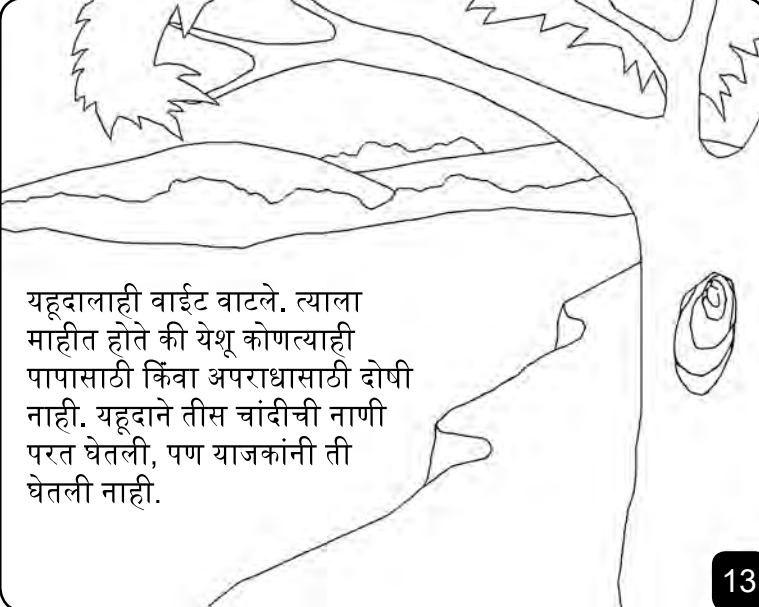 यहूदालाही वाईट वाटले. त्याला
माहीत होते की येशू कोणत्याही
पापासाठी किंवा अपराधासाठी दोषी
नाही. यहूदाने तीस चांदीची नाणी
परत घेतली, पण याजकांनी ती
घेतली नाही.
13